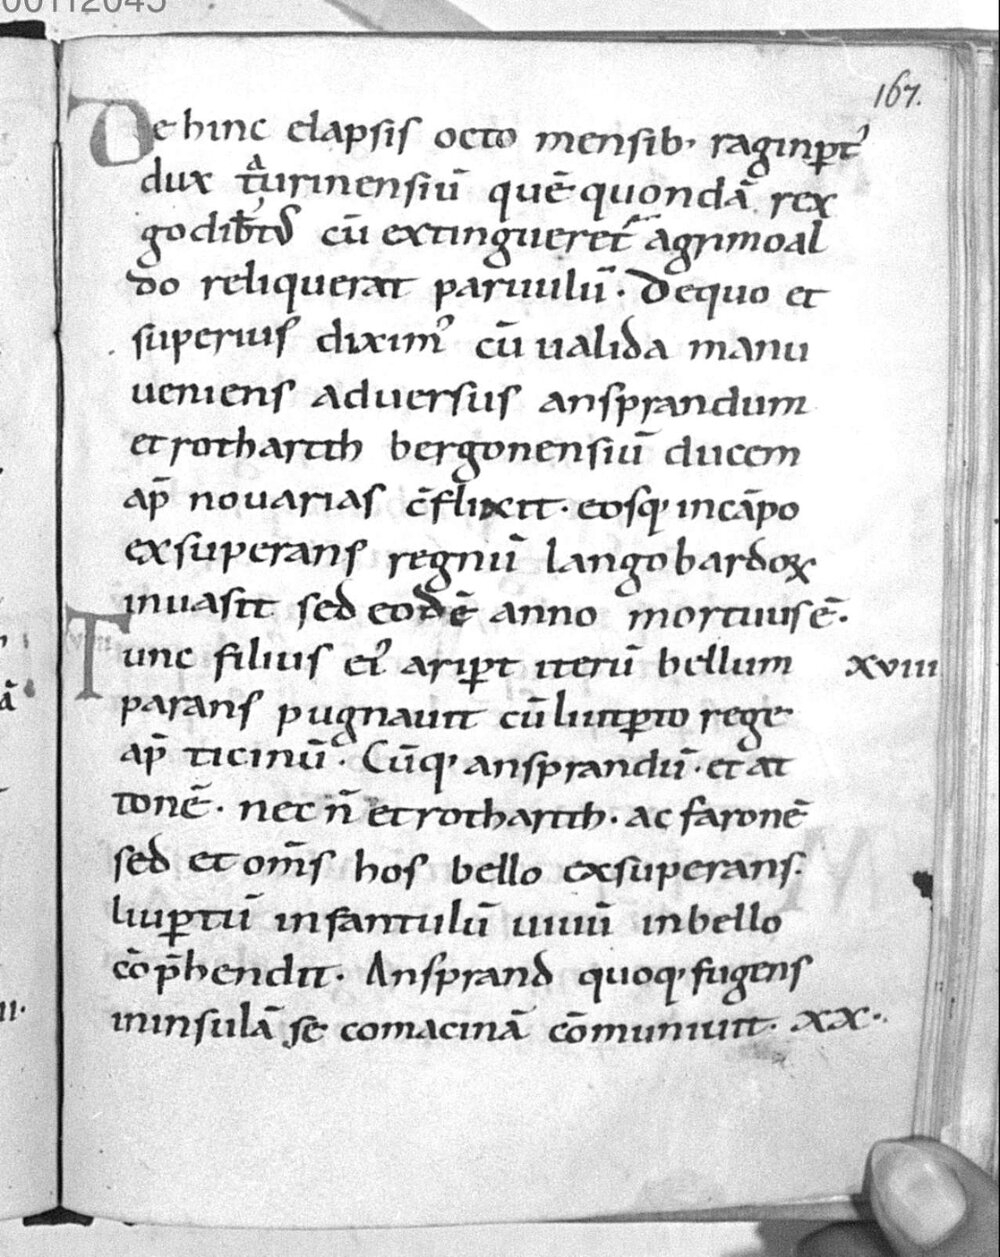 167.
De hinc elapsis octo mensib' raginp̱t'
dux tͣurinensiū quē quondā rex
godib̄tus cū extinguer& agrimoal
do reliquerat paruulū. De quo et
superius dixim' cū ualida manu
ueniens aduersus ansprandum
et rotharith bergonensiū ducem
ap̄ nouarias c̄flixit. eosq' incāpo
exsuperans regnū langobardoꝝ
inuasit sed eodē anno mortuus ē.
Tunc filius ei' arip̱t iterū bellum xviii
parans pugnauit cū liutp̱to rege
ap̄ ticinū. Cūq' ansprandū. et at
tonē. nec n̄ et rotharith. ac faronē
sed et om̄s hos bello exsuperans.
liup̱tū infantulū uiuū inbello
cōp̄hendit. Ansprand quoq' fugiens
ininsulā se comacinā cōmuniuit. xx.